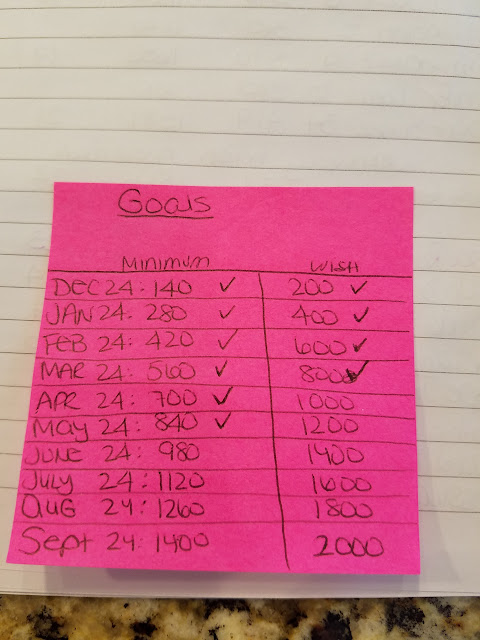 Goals
Minimum WISH
DEC 24: 140 ✓ 200 ✓
JAN 24: 280 ✓ 400 ✓
FEB 24: 420 ✓ 600 ✓
MAR 24: 560 ✓ 800 ✓
APR 24: 700 ✓ 1000
MAY 24: 840 ✓ 1200
JUNE 24: 980 1400
JULY 24: 1120 1600
AUG 24: 1260 1800
Sept 24: 1400 2000